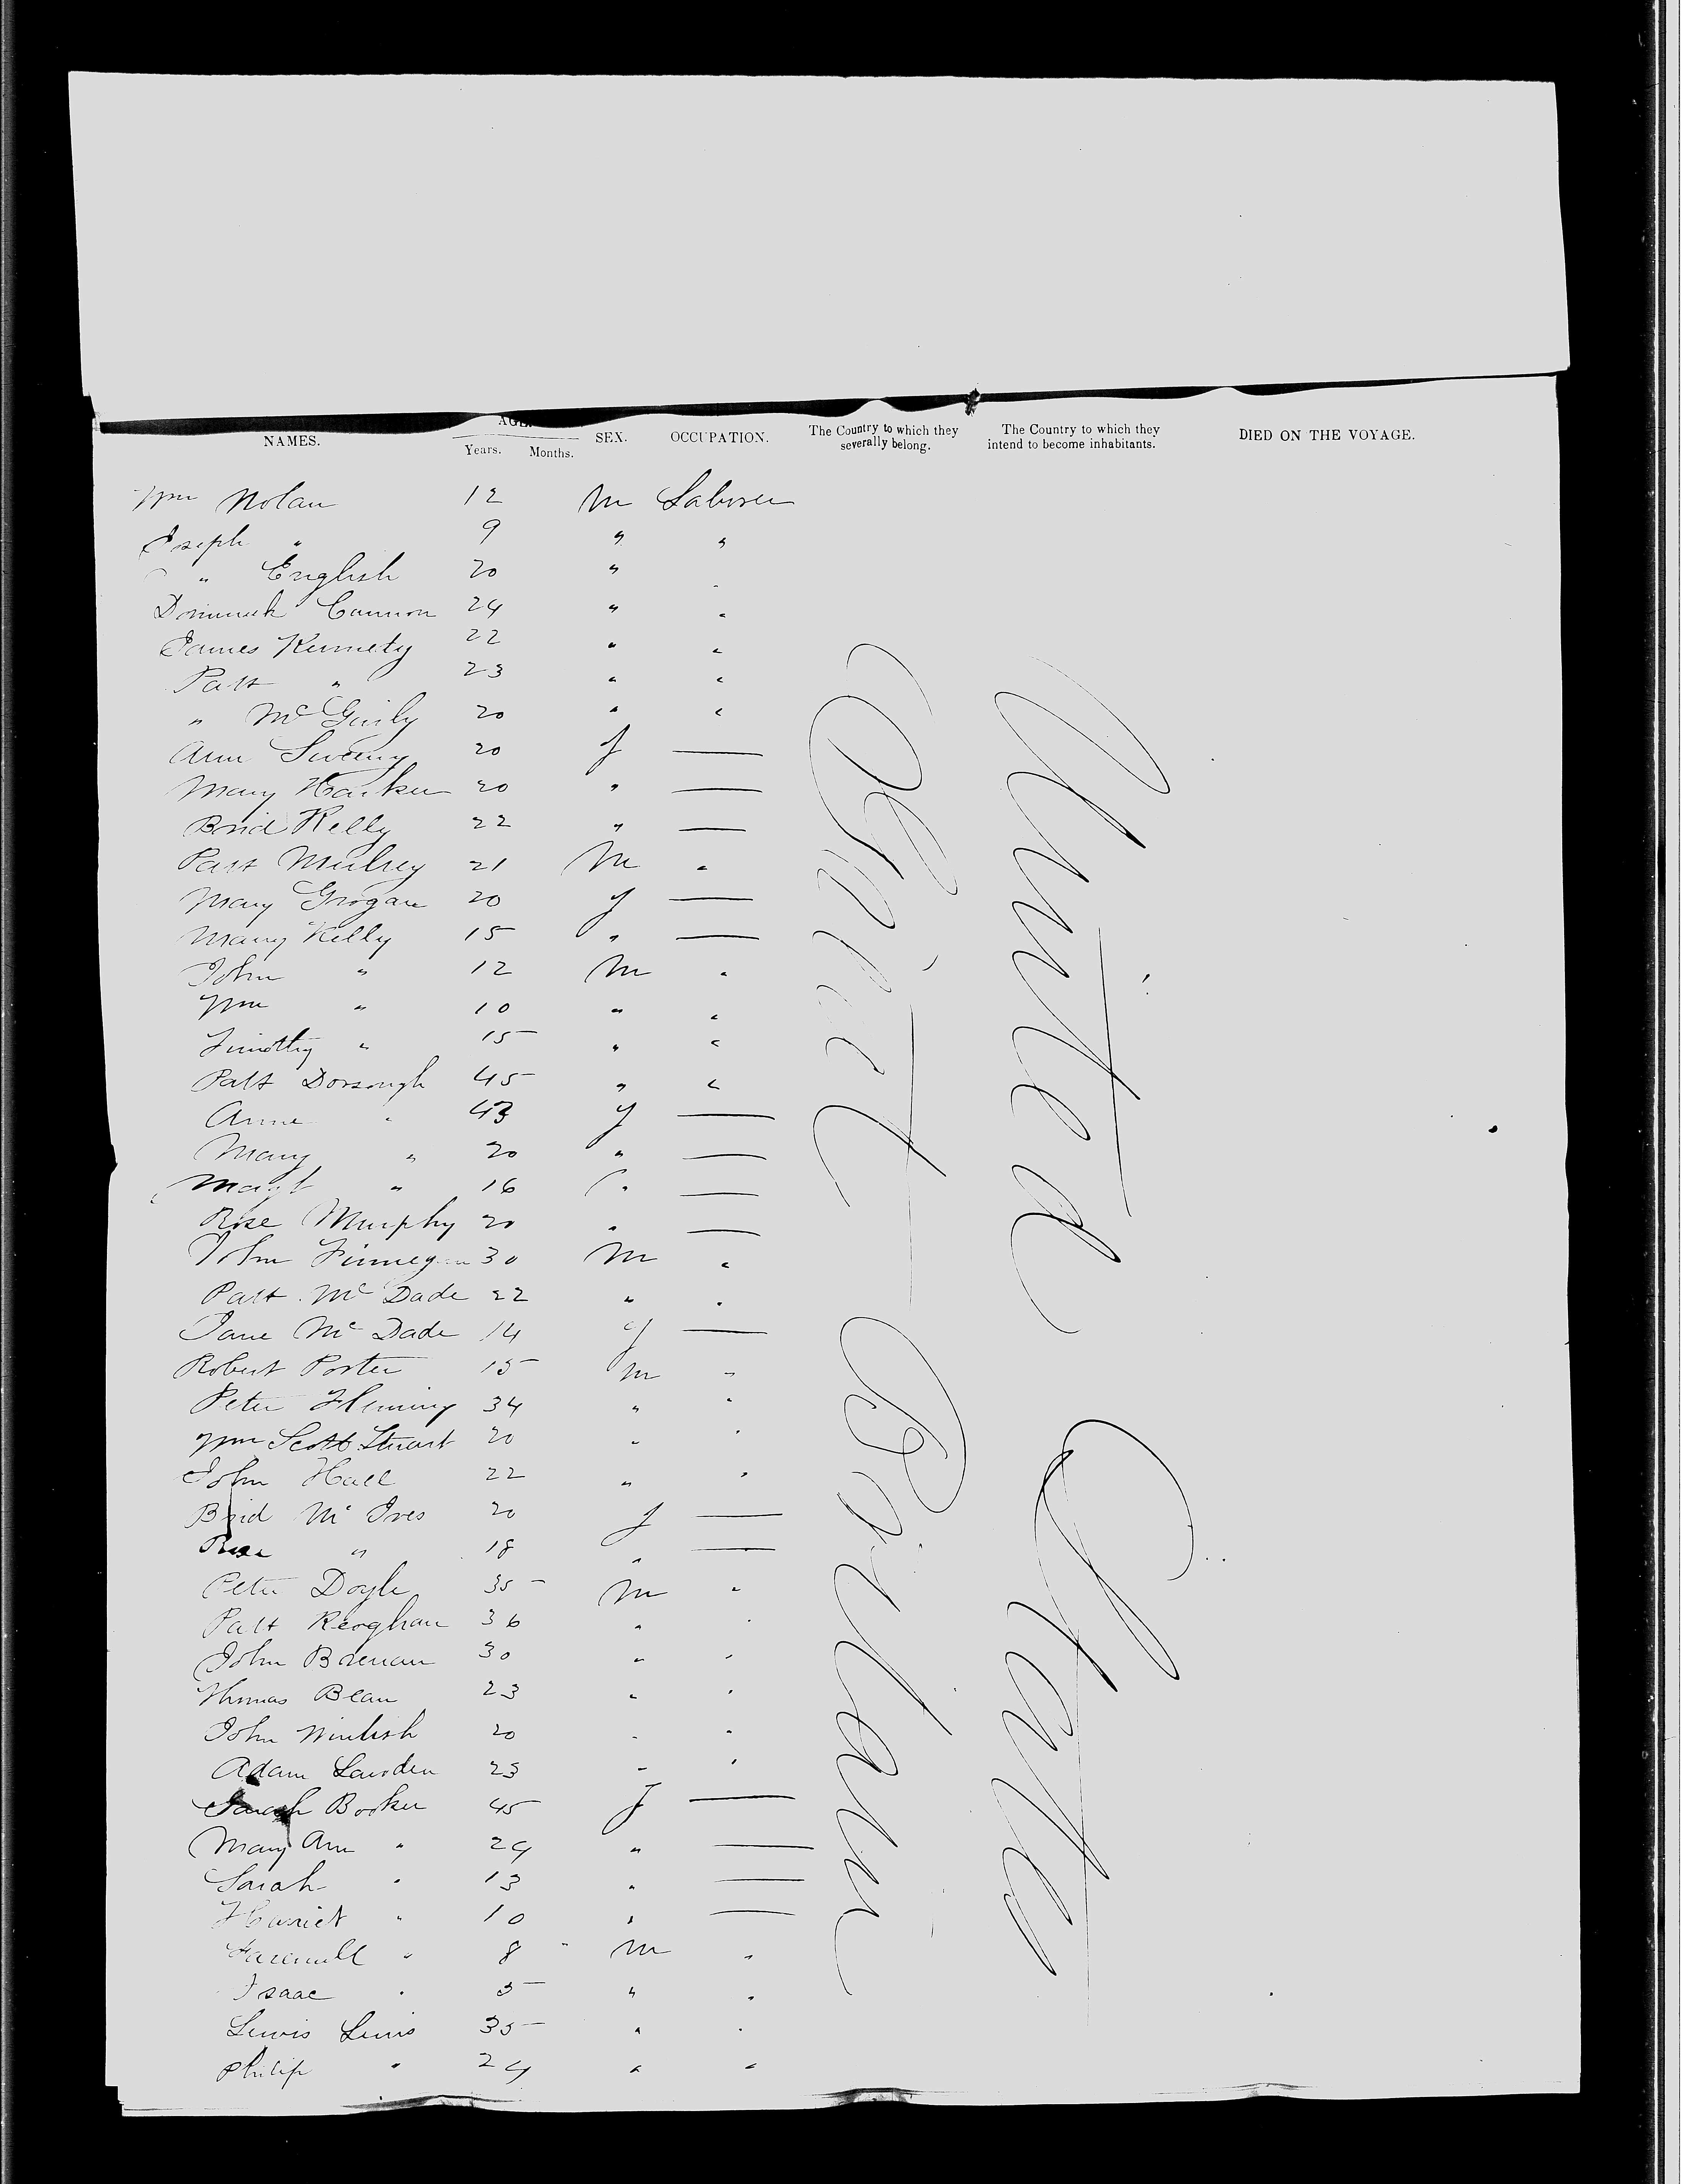 NAMES. AGE. Years. Months. SEX. OCCUPATION. The Country to which they severally belong. The Country to which they intend to become inhabitants. DIED ON THE VOYAGE.
Wm Nolan 12 M Laborer
Joseph " 9 " "
" English 20 "
Dominick Cannon 24 " "
James Kennety 22 " "
Patt " 23 " "
" Mc 20 " "
Ann Sweeny 20 f —
Mary Harker 20 " —
Brid Kelly 22 " —
Patt Mulrey 21 M "
Mary Grogan 20 f —
Mary Kelly 15 " —
John " 12 M "
Wm " 10 " "
Timothy " 15 " "
Patt 45 " "
Anne " 43 f —
Mary " 20 " —
Magt " 16 " —
Rose Murphy 20 " —
John Finnegan 30 M "
Patt Mc Dade 22 " "
Jane Mc Dade 14 f —
Robert Porter 15 M "
Peter Fleming 34 " "
Wm Scott Stuart 20 " "
John Hall 22 " "
Brid Mc Ives 20 f —
Rose " 18 " —
Peter Doyle 35 M "
Patt Keoghan 36 " "
John Brenan 30 " "
Thomas Bean 23 " "
John 20 " "
Adam 23 " "
Sarah Booker 45 f —
Mary Ann " 24 " —
Sarah " 13 " —
Harriet " 10 " —
" 8 M "
Isaac " 5 " "
Lewis Lewis 35 " "
Philip " 24 " "
Great Britain
United States